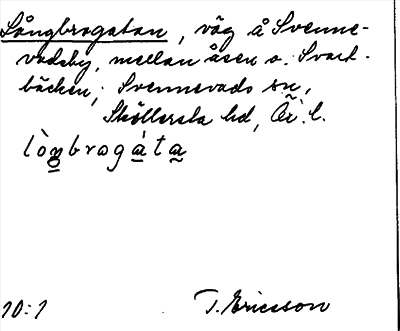 Långbrogatan, väg å Svenne-
vadsby, mellan åsen o. Svart-
bäcken, Svennevads sn,
Sköllersta hd, Ör. l.
lòŋbrogàta
10:1 T. Ericsson